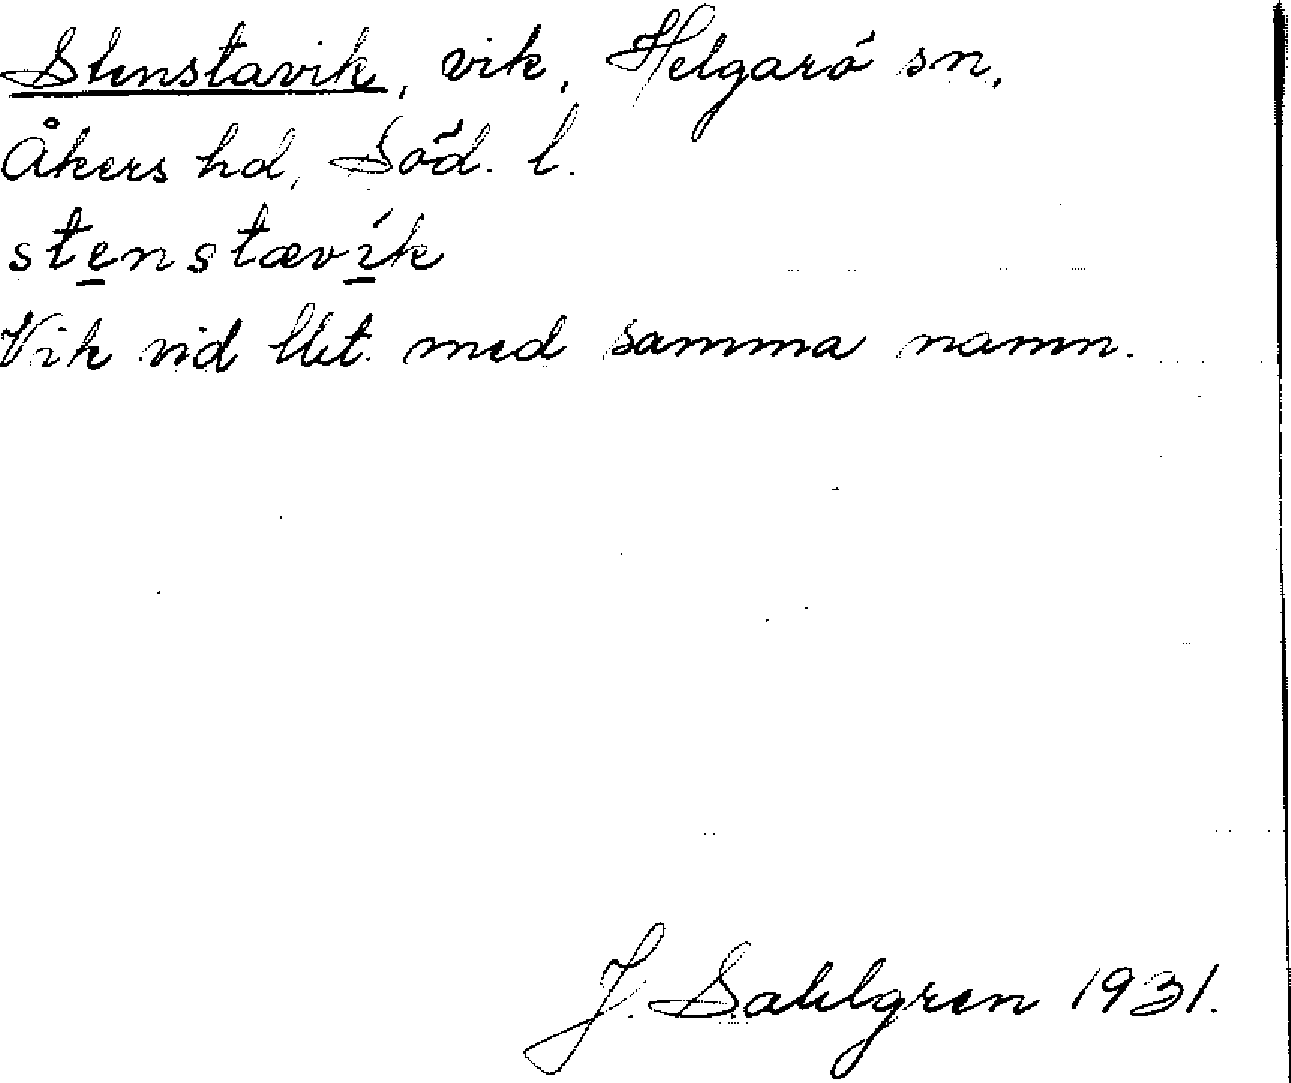 Stenstavik, vik, Helgarö sn,
Åkers hd, Söd. l.
stenstævik
Vik vid lht. med samma namn.
J. Sahlgren 1931.